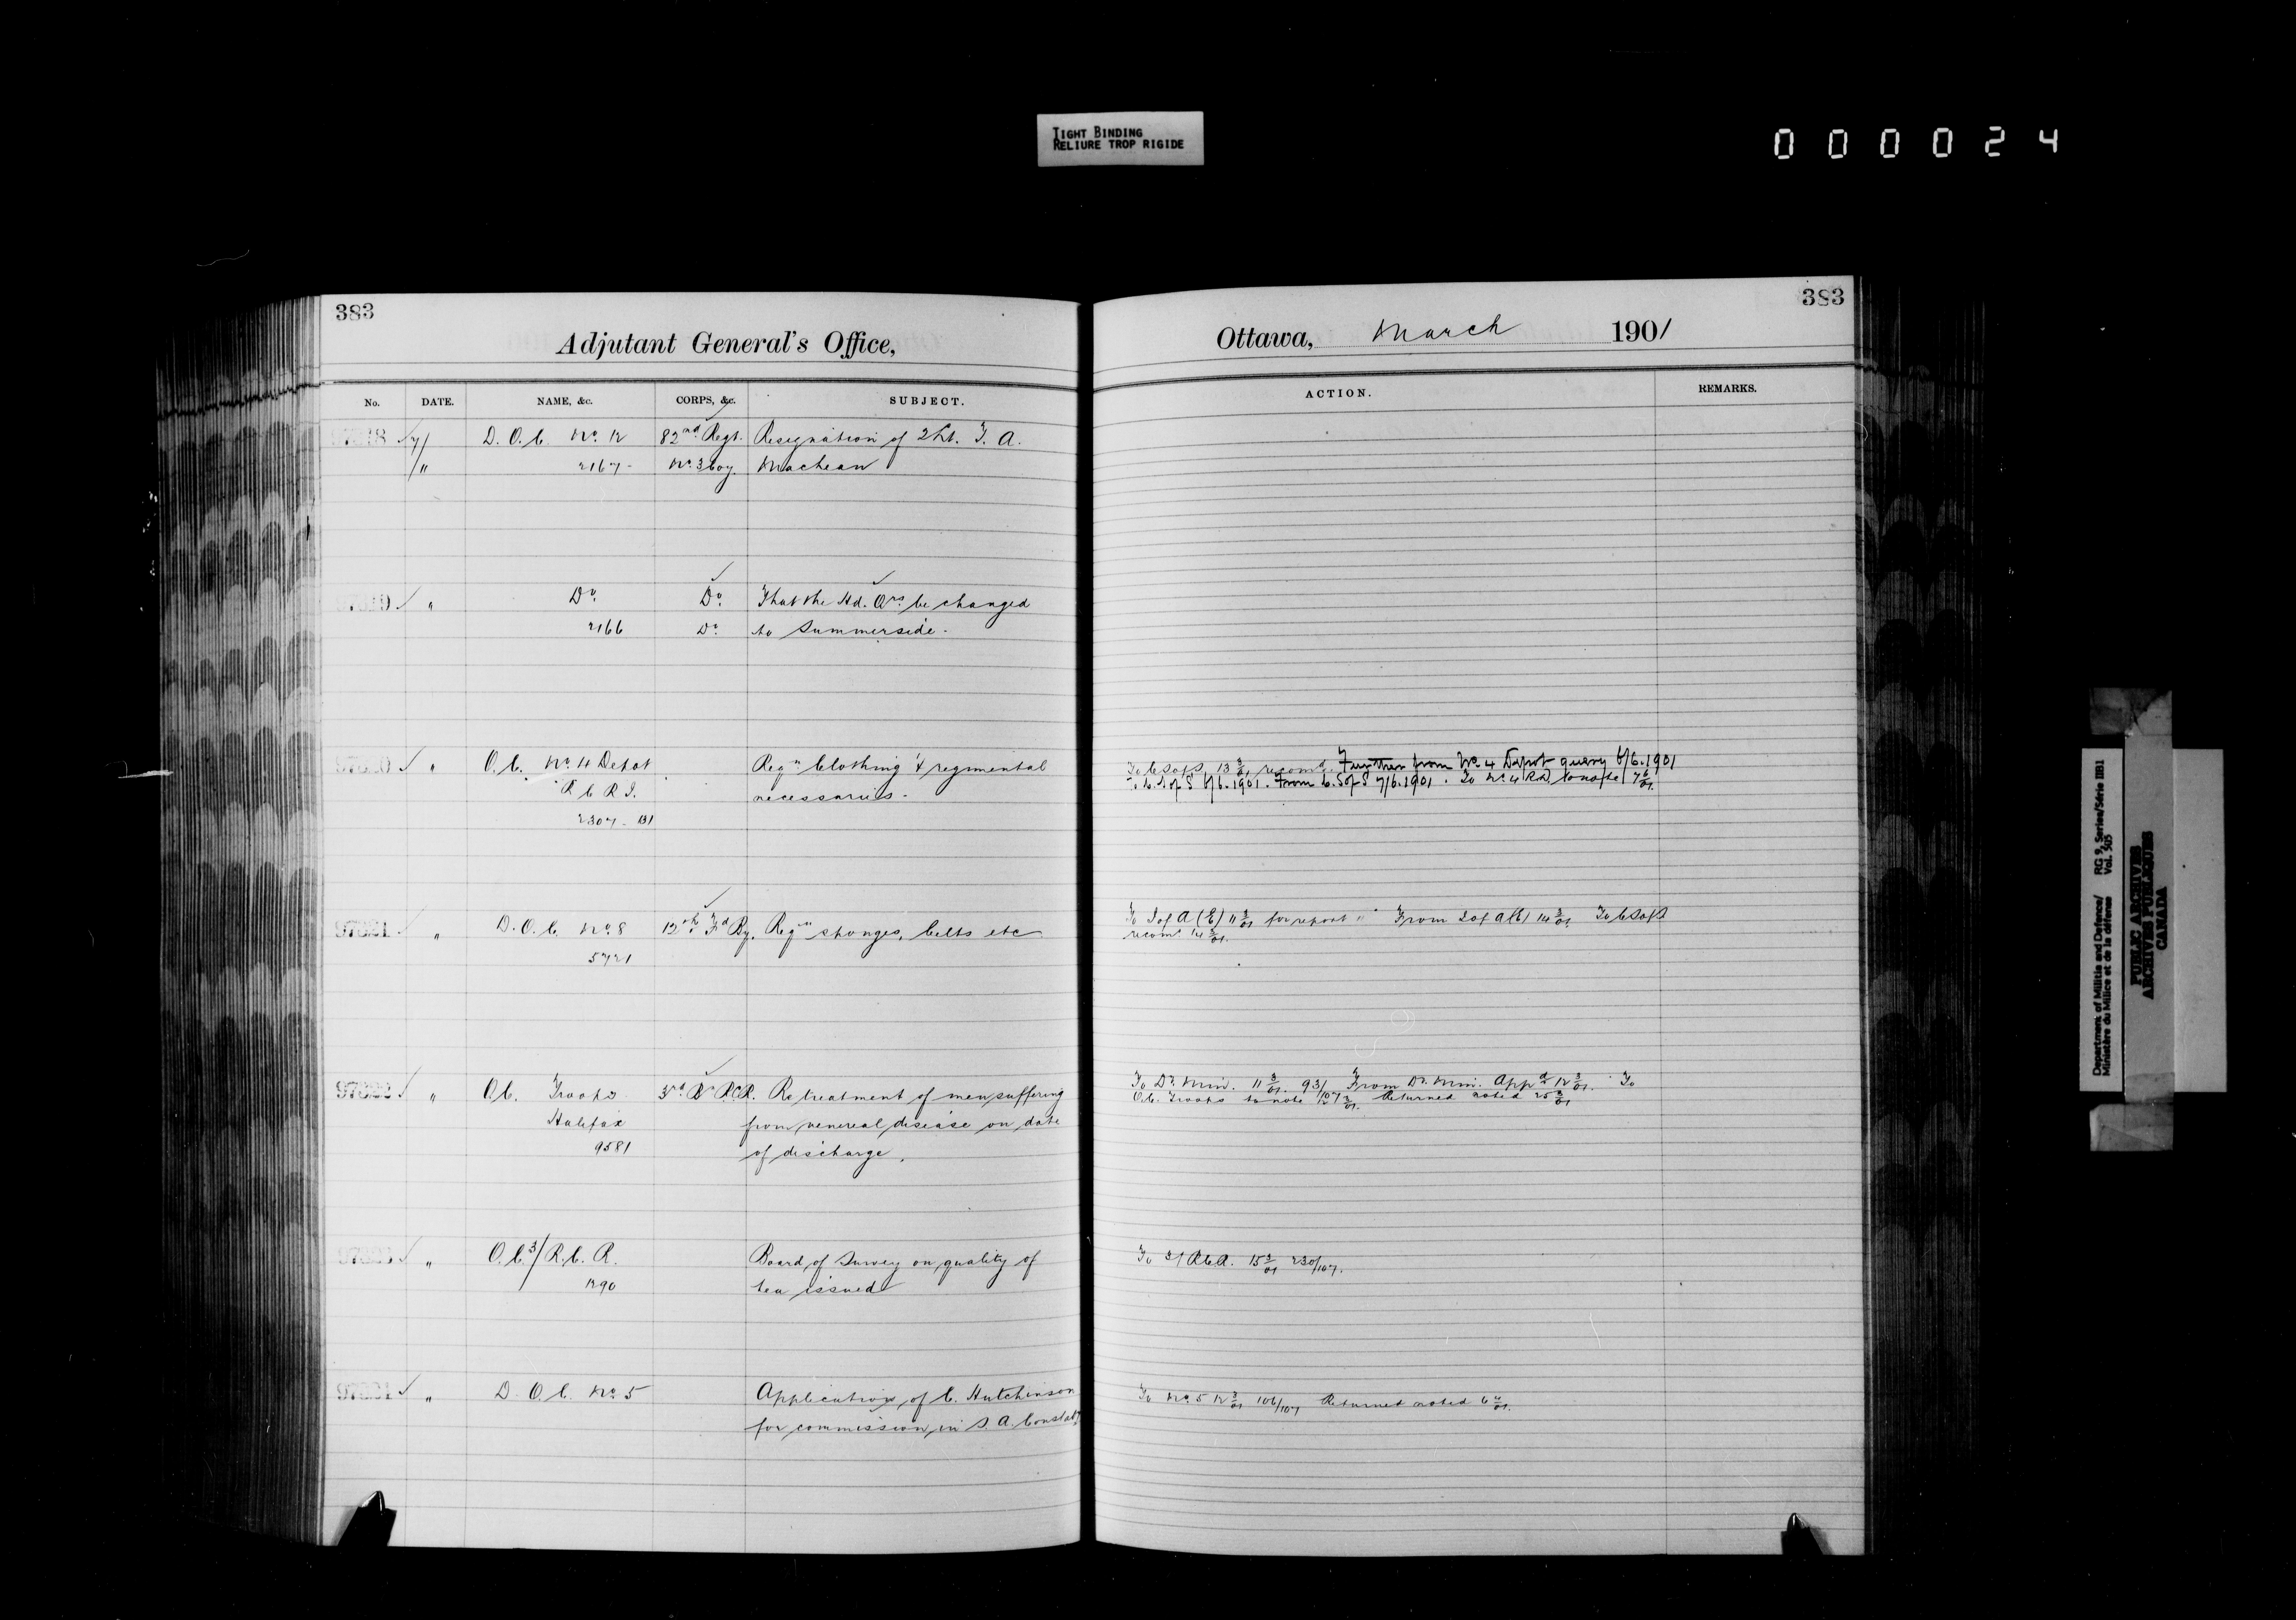 TIGHT BINDING
RELIURE TROP RIGIDE
000024
383
Adjutant General's Office,
No. DATE. NAME, &c. CORPS, &c. SUBJECT.
97318 7/ D. O. C. No. 12 82nd Regt. Resignation of 2 Lt. T. A.
/11 2167 - No. 3 Coy. MacLean
97319 " Do. Do. That the Hd. Qrs. be changed
2166 Do. to Summerside.
97320 " O.C. No. 4 Depot Reqn. Clothing & regimental
R C R I. necessaries.
2307 - 131
97321 " D. O. C. No. 8 12th Fd By. Reqn sponges, belts etc
5721
97322 " O.C. Troops 3rd Bn R.C.R. Re treatment of men suffering
Halifax from venereal disease on date
9581 of discharge.
97323 " O.C. 3/R.C.R. Board of Survey on quality of
1290 tea issued
97324 " D. O. C. No. 5 Application of C. Hutchinson
for commission in S. A. Constaby
383
Ottawa, March 1901
ACTION. REMARKS.
To C S of S, 13 3/01 recomd. Further from No. 4 Depot query 6/6.1901
To C. S of S 6/6.1901. From C. S of S 7/6.1901. To No. 4 R.D. 7 6/01.
To D of A (E) 11 3/01 for report " From D of A (E) 14 3/01. To C S of S
recomd. 14 3/01.
To Dr. Min. 11 3/01. 93/ From Dr. Min. Appd 12 3/01. To
O.C. Troops to note 3/01. Returned noted 25 3/01
To 3/R.C.R. 15 3/01 230/107.
To No. 5 12 3/01 106/107 Returned noted 6 4/01.
Department of Militia and Defence/ RG 9, Series/Série IIB1
Ministère du Milice et de la défense Vol. 505
PUBLIC ARCHIVES
ARCHIVES PUBLIQUES
CANADA